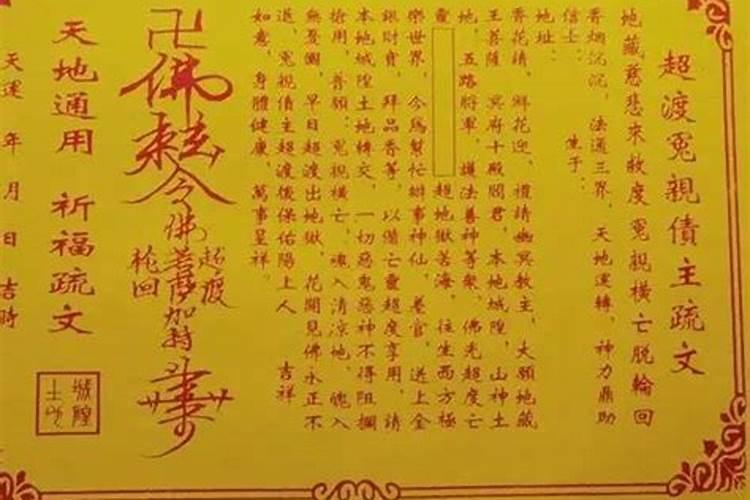 超渡冤親債主疏文
地藏慈悲來救度冤親橫亡脱輪回
香烟沉沉，法通三界，天地運轉，神力鼎助
信士： 生于：
地址：
香花請，鲜花迎，禮請幽冥教主，大願地藏
王菩薩，冥府十殿閻君，本地城隍，山神土
地，五路將軍，護法善神等衆，佛光超度亡
靈 超地獄苦海，往生西方極
樂世界，今爲幫忙辦事神仙，差官，送上金
銀財寶，拜品香等，以備亡靈超度享用，請
本地城隍土地轉交，一切惡鬼惡神不得阻攔
搶用，普願：冤親橫亡，魂入清凉地，魄入
無憂國，早日超渡出地獄，花開見佛永正不
退，冤親債主超渡後保佑陽上人 吉祥
如意，身體健康，萬事呈祥。
卍佛来令佛菩薩加持
超渡
輪回
天地通用 祈福疏文
城隍
土地
天運 年 月 日 吉時